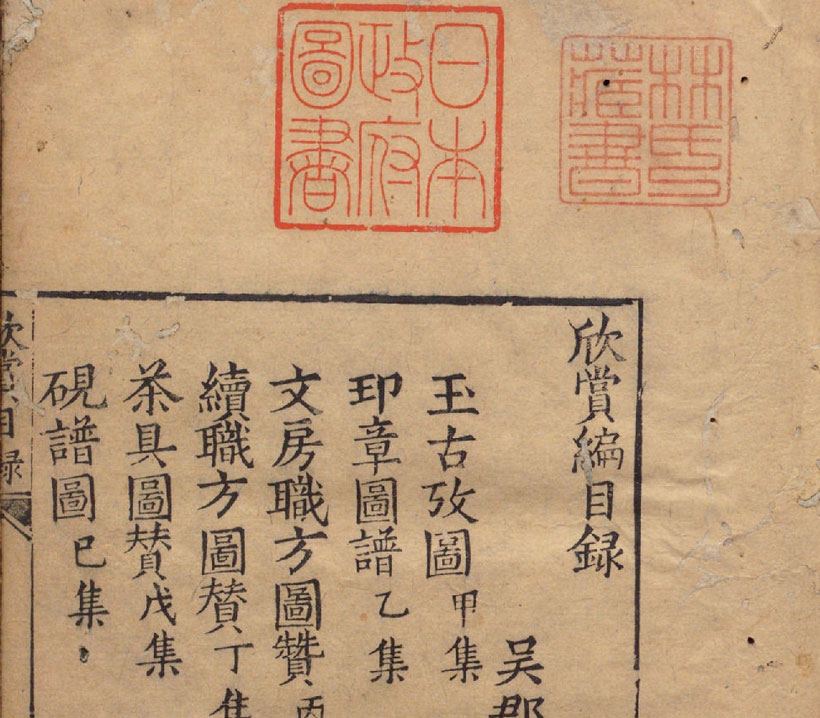 日本
政府
圖書
林氏
藏書
欣賞編目録
吴郡
玉古攷圖甲集
印章圖譜乙集
文房職方圖贊丙
續職方圖賛丁集
茶具圖賛戊集
硯譜圖巳集
欣賞目録